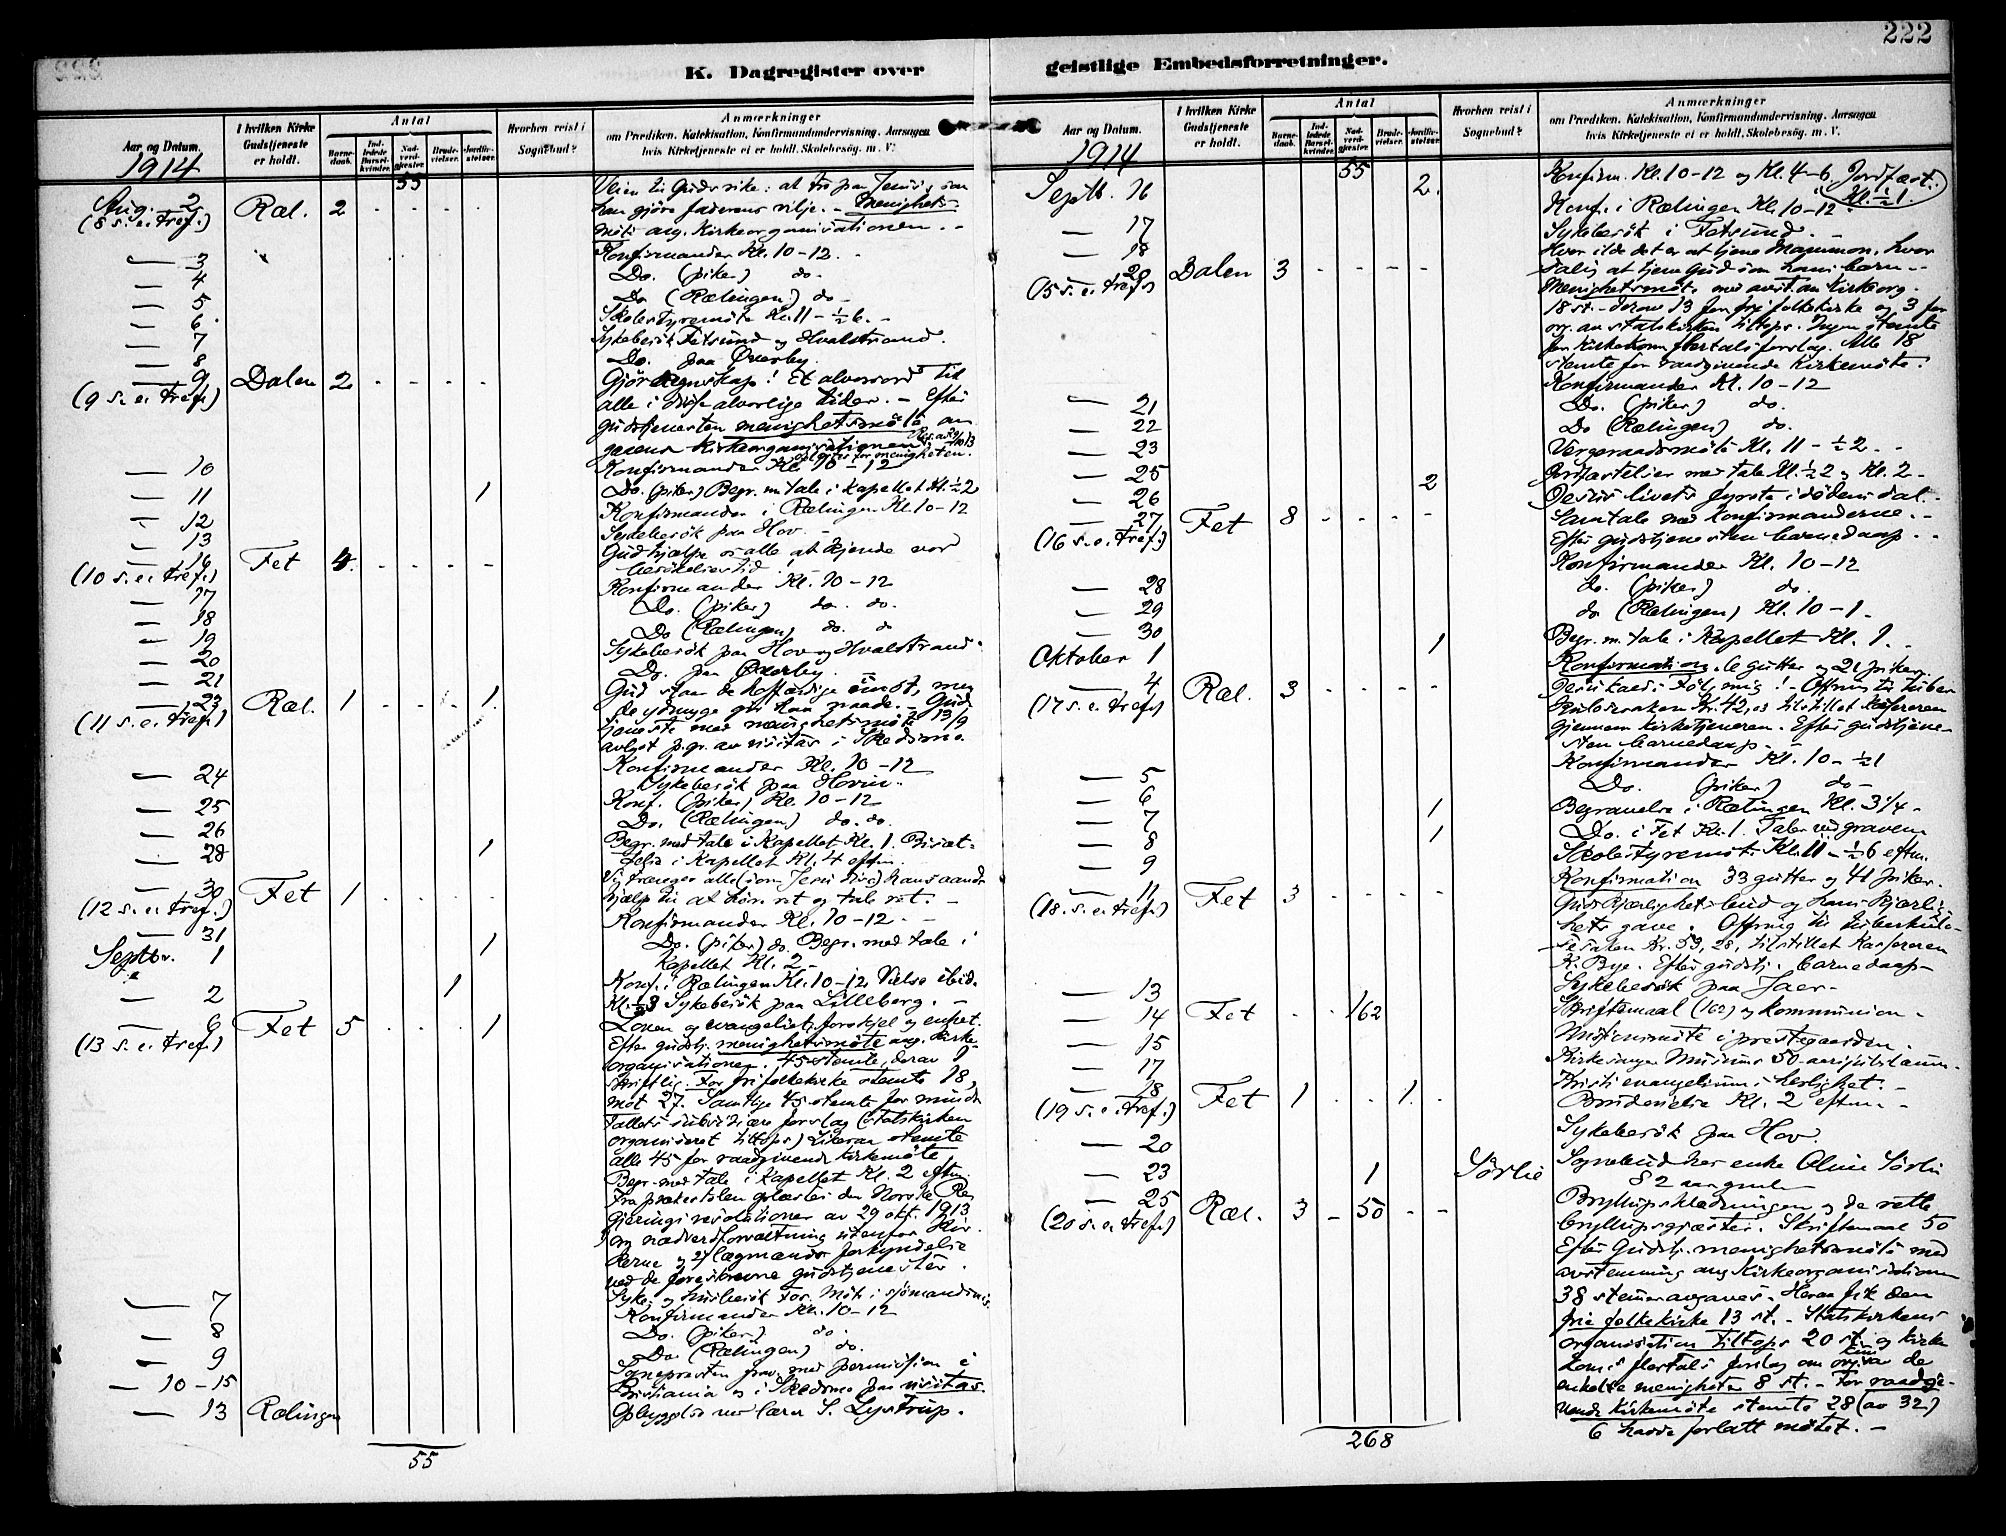 222
K. Dagregister over geistlige Embedsforretninger.
Aar og Datum.
I hvilken Kirke Gudstjeneste er holdt.
Antal
Barnedaab.
Indledede Barselkvinder.
Nadverdgjæster.
Brudevielser.
Jordfæstelser.
Hvorhen reist i Sognebud?
Anmærkninger
om Prædiken. Katekisation, Konfirmandundervisning. Aarsagen
hvis Kirketjeneste ei er holdt. Skolebesøg. m. V.
1914
55
Aug. 2 Ræl. 2 Veien til Guds rike: at tro paa Jesus, som
(8 s. e. tref.) han gjøre faderens vilje. - Menighets-
møte ang. Kirkeorganisationen. -
— 3 Konfirmander Kl. 10-12. -
— 4 Do. (piker) do.
— 5 Do (Rælingen) do -
— 6 Skolestyremøte Kl. 11 - ½6. -
— 7 Sykebesøk Fetsund og Hvalstrand.
— 8 Do. paa Øverby.
— 9 Dalen 2 Gjør regnskap! Et alvorsord til
(9 s. e. tref.) alle i disse alvorlige tider. - Efter
gudstjenesten menighetsmøte an
gaaende Kirkeorganisationen.
— 10 Konfirmander Kl. 10 - 12
— 11 1 Do. (piker) Begr. m. tale i Kapellet Kl. ½2
— 12 Konfirmander i Rælingen Kl. 10-12
— 13 Sykebesøk paa Hov. -
— 16 Fet 4. Gud hjælpe os alle at kjende vor
(10 s. e. tref.) besøkelsestid!
— 17 Konfirmander Kl. 10-12
— 18 Do. (piker) do. do.
— 19 Do (Rælingen) do. do
— 20 Sykebesøk paa Hov og Hvalstrand.
— 21 Do. paa Øverby.
— 23 Ræl. 1 1. Gud staar de hoffærdige imot, men
(11 s. e. tref.) de ydmyge gir han naade. - Gud
tjeneste med menighetsmøte 13/9
avlyst p. gr. av visitas i Skedsmo.
— 24 Konfirmander Kl. 10-12
Sykebesøk paa Hovin.
— 25 Konf. (piker) Kl. 10-12
— 26 Do. (Rælingen) do. do.
— 28 1 Begr. med tale i Kapellet Kl. 1. Bisæt-
telse i Kapellet Kl. 4 eftm.
— 30 Fet 1 Vi trænger alle (som Jesu hans aands
(12 s. e. tref.) hjælp til at høre ret og tale ret. -
— 31 Konfirmander Kl. 10-12 -
Septbr. 1 1 Do. (piker) do. Begr. med tale i
Kapellet Kl. 2 -
— 2 1 Konf. i Rælingen Kl. 10-12, Vielse ibid.
Kl. ½3 Sykebesøk paa Lilleborg. -
— 6 Fet 5 1 Loven og evangeliets forskjel og enhet.
(13 s. e. tref.) Efter gudstj. menighetsmøte ang. kirke-
organisationen. 45 stemte, derav 9
skriftlig. For fri folkekirke stemte 18,
mot 27. Samtlige 45 stemte for minda
tallets subsidiære forslag (statskirken
organiseret tiltops) Likesaa stemte
alle 45 for raadgivende kirkemøte
Begr. med tale i Kapellet Kl. 2 eftm.
Fra prækestolen oplæstes den Norske Re
gjerings resolutioner av 29 okt. 1913
1) ang nadverdforvaltning utenfor kir
kerne og 2) lægmænds forkyndelse
ved de foreskrevne gudstjenester.
— 7 Syke- og husbesøk. For. Møte i sjømandsmis.
— 8 Konfirmander Kl. 10-12
Do. (piker) do.
— 9 Do. (Rælingen) do.
— 10-15 Sognepresten frav. med permission i
Kristiania og i Skedsmo paa visitas.
— 13 Rælingen Opbyggelse ved lærer S. Lystrup.
55
Anmærkninger
Aar og Datum.
I hvilken Kirke Gudstjeneste er holdt.
Antal
Barnedaab.
Indledede Barselkvinder.
Nadverdgjæster.
Brudevielser.
Jordfæstelser.
Hvorhen reist i Sognebud?
om Prædiken. Katekisation, Konfirmandundervisning. Aarsagen
hvis Kirketjeneste ei er holdt. Skolebesøg. m. V.
1914
55
Septb. 16 2. Konfirm. Kl. 10-12 og Kl. 4-6. Jordfæst. Kl. ½1.
— 17 Konf. i Rælingen Kl. 10-12.
— 18 Sykebesøk i Fetsund. -
— 20 Dalen 3 Hvor ilde det er at tjene Mammon, hvor
(15 s. e. tref.) salig at tjene Gud som hans barn. -
Menighetsmøte med avst. an kirkeorg.
18 st. - derav 13 for fri folkekirke og 3 for
org. av statskirken tiltops. Ingen stemte
for Kirkekom. flertals forslag. Alle 18
stemte for raadgivende Kirkemøte.
— 21 Konfirmander Kl. 10-12
— 22 Do. (piker) do.
— 23 Do (Rælingen) do.
— 25 Vergeraadsmøte Kl. 11 - ½2. -
— 26 2 Jordfæstelser med tale Kl. ½2 og Kl. 2 -
— 27 Fet 8 Jesus livets fyrste i dødens dal. -
(16 s. e. tref.) Samtale med konfirmanderne. -
Efter gudstjenesten barnedaap. -
— 28 Konfirmander Kl. 10-12
— 29 do. (piker) do.
— 30 do (Rælingen) Kl. 10-1. -
Oktober 1 1 Begr. m. tale i Kapellet Kl. 1. -
— 4 Ræl. 3 Konfirmation. 6 gutter og 21 piker.
(17 s. e. tref.) Jesu kald: Følg mig! - Offring til tuber
kulosesaken Kr. 42,03 tilstillet kasereren
gjennem kirketjeneren. Efter gudstjene-
sten barnedaap. -
— 5 Konfirmander Kl. 10-½1
— 6 Do. (piker) do -
— 7 1 Begravelse i Rælingen Kl. 3¼ -
— 8 1 Do. i Fet Kl. 1. Taler ved graven
— 9 Skolestyremøte Kl. 11 - ½6 eftm.
— 11 Fet 3 Konfirmation 33 gutter og 41 piker.
(18. s. e. tref.) Guds kjærlighetsbud og hans kjærlig-
hets gave. Offring til tuberkulo-
sesaken Kr. 53,28, tilstillet kassereren
K. Bye. Efter gudstj. barnedaap -
— 13 Sykebesøk paa Jaer -
— 14 Fet 162 Skriftemaal (162) og kommunion. -
— 15 Missionsmøte i prestegaarden.
— 17 Kirkesanger 50-aarsjubilæum.
— 18 Fet 1 1. Kristi evangelium i herlighet. -
(19 s. e. tref.) Brudevielse Kl. 2 eftm. -
— 20 Sykebesøk paa Hov.
— 23 1 Sørlie Sognebud hos enke Oline Sørlie
82 aar gml.
— 25 Ræl. 3 50 Bryllupsklædningen og de rette
(20 s. e. tref.) bryllupsgjæster. Skriftemaal 50
Efter Gudstj. menighetsmøte med
avstemning ang Kirkeorganisationen
38 stemmer avgaves. Herav fik den
frie folkekirke 13 st. - Statskirkens
organisation tiltops 20 st. og kirke
kom.s flertals forslag om de
enkelte menigheter 8 st. - For raadgi-
vende Kirkemøte stemte 28 (av 32)
6 hadde forlatt møtet. -
268